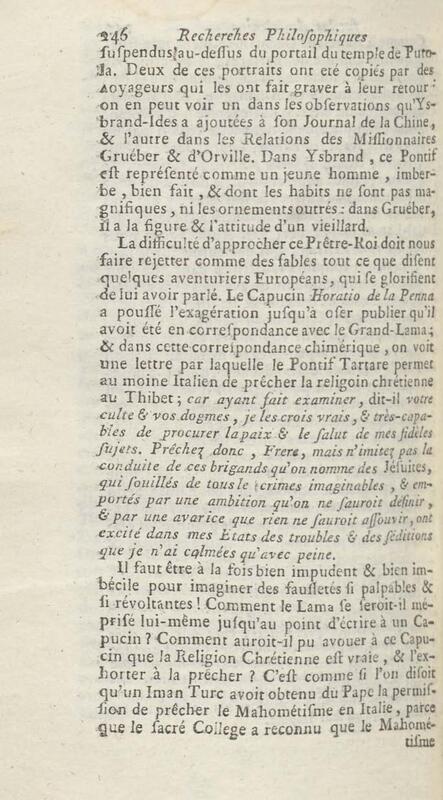 246 Recherches Philoſophiques
ſuſpendus au-deſſus du portail du temple de Puto-
la. Deux de ces portraits ont eté copiés par des
voyageurs qui les ont fait graver à leur retour:
on en peut voir un dans les obſervations qu'Yſ-
brand-Ides a ajoutées à ſon Journal de la Chine,
& l'autre dans les Relations des Miſſionnaires
Gruéber & d'Orville. Dans Ysbrand, ce Pontif
eſt repréſenté comme un jeune homme, imber-
be, bien fait, & dont les habits ne ſont pas ma-
gnifiques, ni les ornements outrés: dans Gruéber,
il a la figure & l'attitude d'un vieillard.
La difficulté d'approcher ce Prêtre-Roi doit nous
faire rejetter comme des fables tout ce que diſent
quelques aventuriers Européans, qui ſe glorifient
de lui avoir parlé. Le Capucin Horatio de la Penna
a pouſſé l'exagération juſqu'à oſer publier qu'il
avoit été en correſpondance avec le Grand-Lama;
& dans cette correſpondance chimérique, on voit
une lettre par laquelle le Pontif Tartare permet
au moine Italien de précher la religoin chrétienne
au Thibet; car ayant fait examiner, dit-il votre
culte & vos dogmes, je les crois vrais, & très-capa-
bles de procurer la paix & le ſalut de mes fidèles
ſujets. Préchez donc, Frere, mais n'imitez pas la
conduite de ces brigands qu'on nomme des Jéſuites,
qui ſouillés de tous le crimes imaginables, & em-
portés par une ambition qu'on ne ſauroit définir,
& par une avarice que rien ne ſauroit aſſouvir, ont
excité dans mes Etats des troubles & des ſéditions
que je n'ai calmées qu'avec peine.
Il faut être à la fois bien impudent & bien im-
bécile pour imaginer des fauſſetés ſi palpables &
ſi révoltantes! Comment le Lama ſe ſeroit-il mé-
priſé lui-même juſqu'au point d'écrire à un Ca-
pucin? Comment auroit-il pu avouer à ce Capu-
cin que la Religion Chrétienne eſt vraie, & l'ex-
horter à la précher? C'eſt comme ſi l'on diſoit
qu'un Iman Turc avoit obtenu du Pape la permiſ-
ſion de prêcher le Mahométiſme en Italie, parce
que le ſacré College a reconnu que le Mahomé-
tiſme